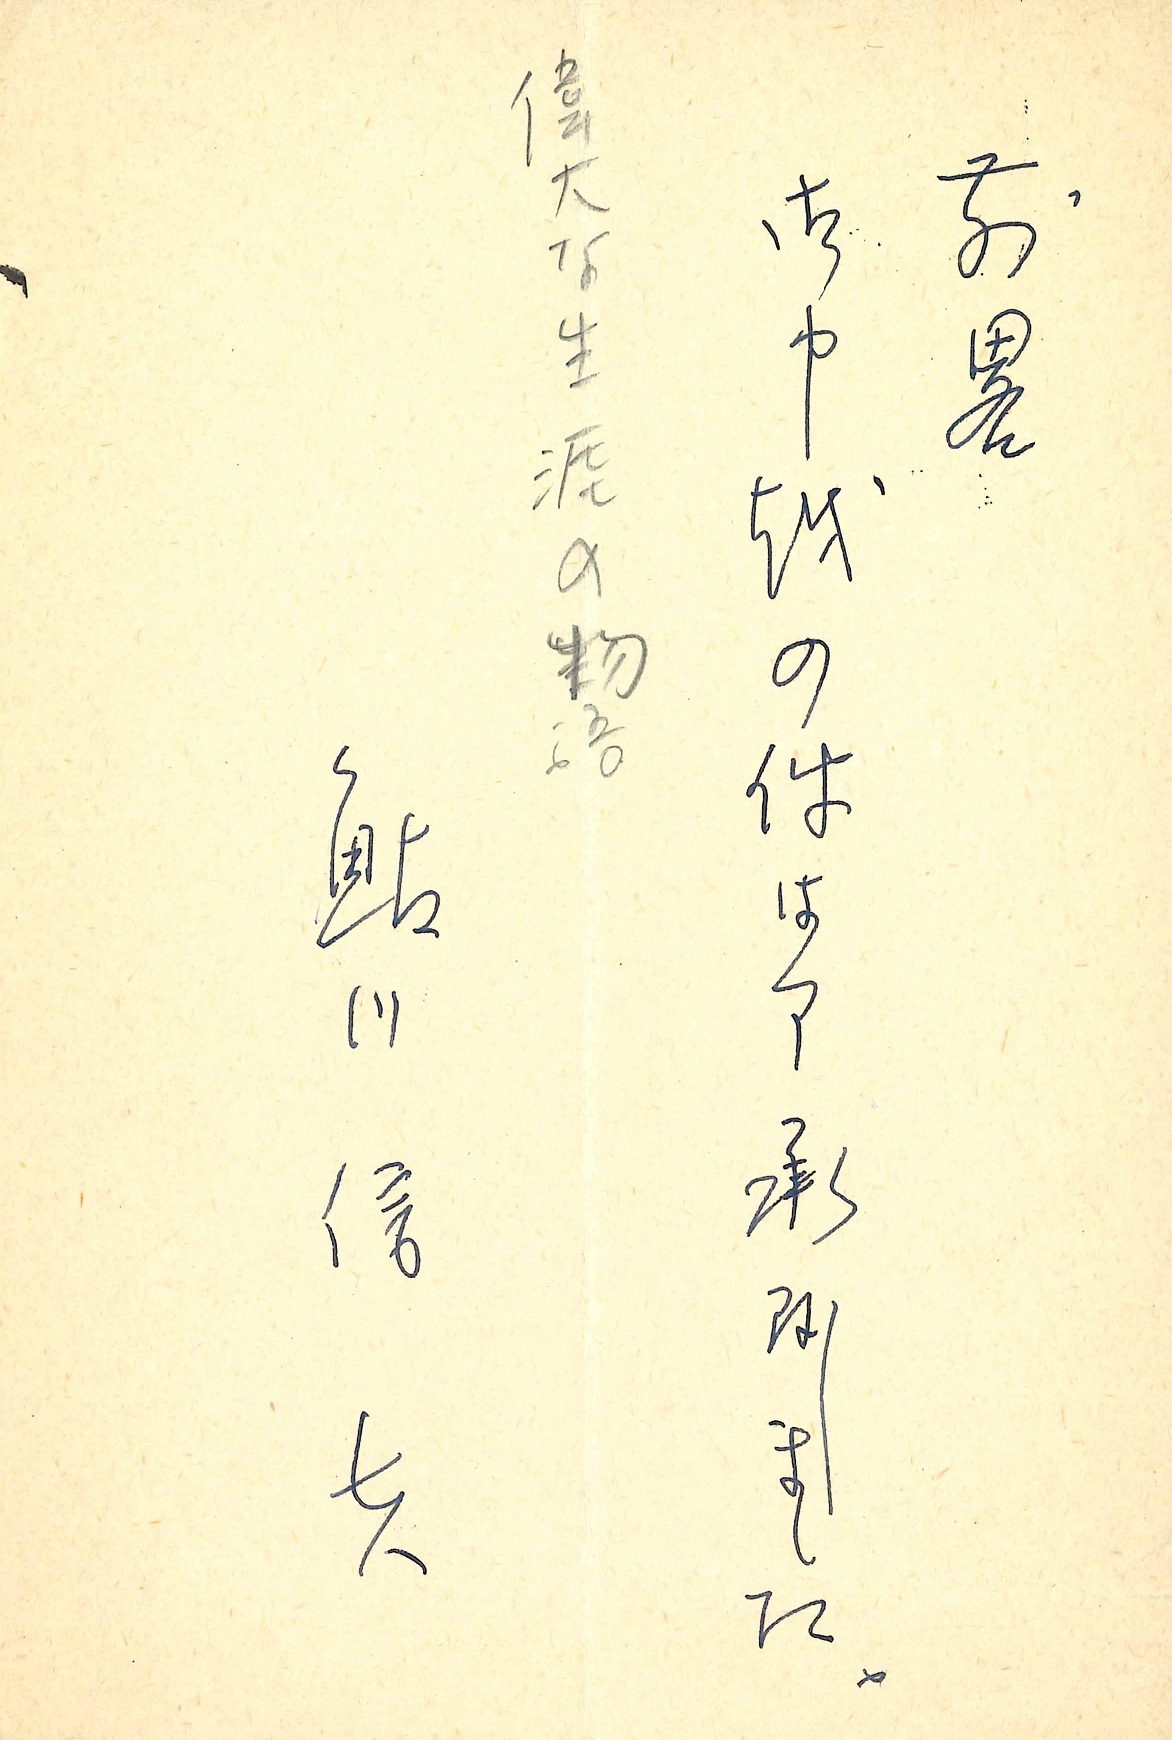 前畧
御申越の件は了承致しました。
偉大な生涯の物語
鮎川信夫